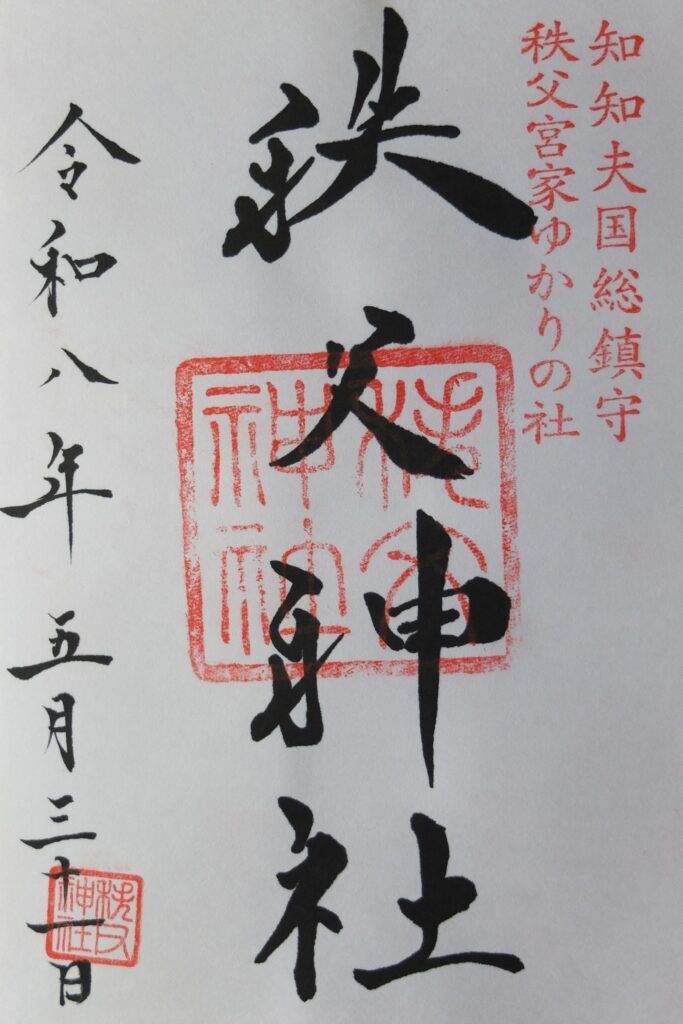 知知夫国総鎮守
秩父宮家ゆかりの社
秩父神社
秩父神社
令和八年五月三十一日
秩父神社